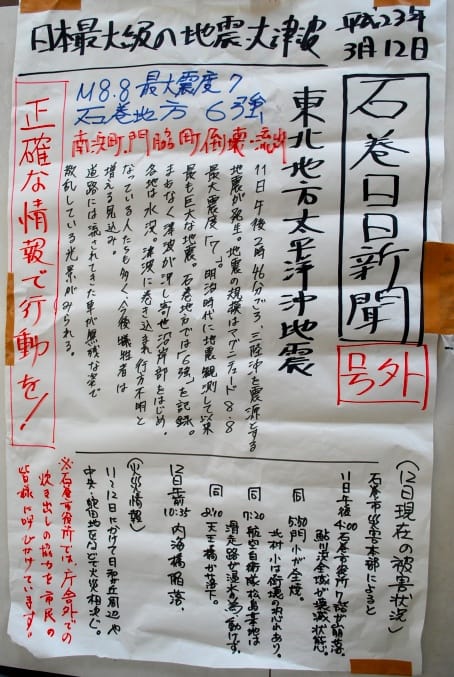 日本最大級の地震大津波
平成23年
3月12日
石巻日日新聞
号外
東北地方太平洋沖地震
M8.8 最大震度7
石巻地方 6強
南浜町、門脇町倒壊・流出
11日午後2時46分ごろ、三陸沖を震源とする
地震が発生。地震の規模はマグニチュード8.8
最大震度「7」。明治時代に地震観測して以来
最も巨大な地震。石巻地方では「6強」を記録。
まもなく津波が押し寄せ沿岸部をはじめ、
各地は水没。津波に巻き込まれ行方不明と
なっている人たちも多く、今後犠牲者は
増える見込み。
道路には流されてきた車が無残な姿で
散乱している光景がみられる。
正確な情報で行動を!
(12日現在の被害状況)
石巻市災害本部によると
11日午後4:00 石巻市役所7階が崩落。
鮎川浜全域が壊滅状態。
5:50 門小が全焼。
北村小は街場の恐れあり。
同 7:20 航空自衛隊松島基地は
滑走路が浸水為動けず。
同 8:10 天王橋が落下。
12日午前10:35 内海橋陥落。
(火災情報)
11~12日にかけて日和が丘周辺や
中央、蛇田地区などで火災相次ぐ。
※石巻市役所では、庁舎外での
炊き出しの協力を市民の
皆様に呼びかけています。